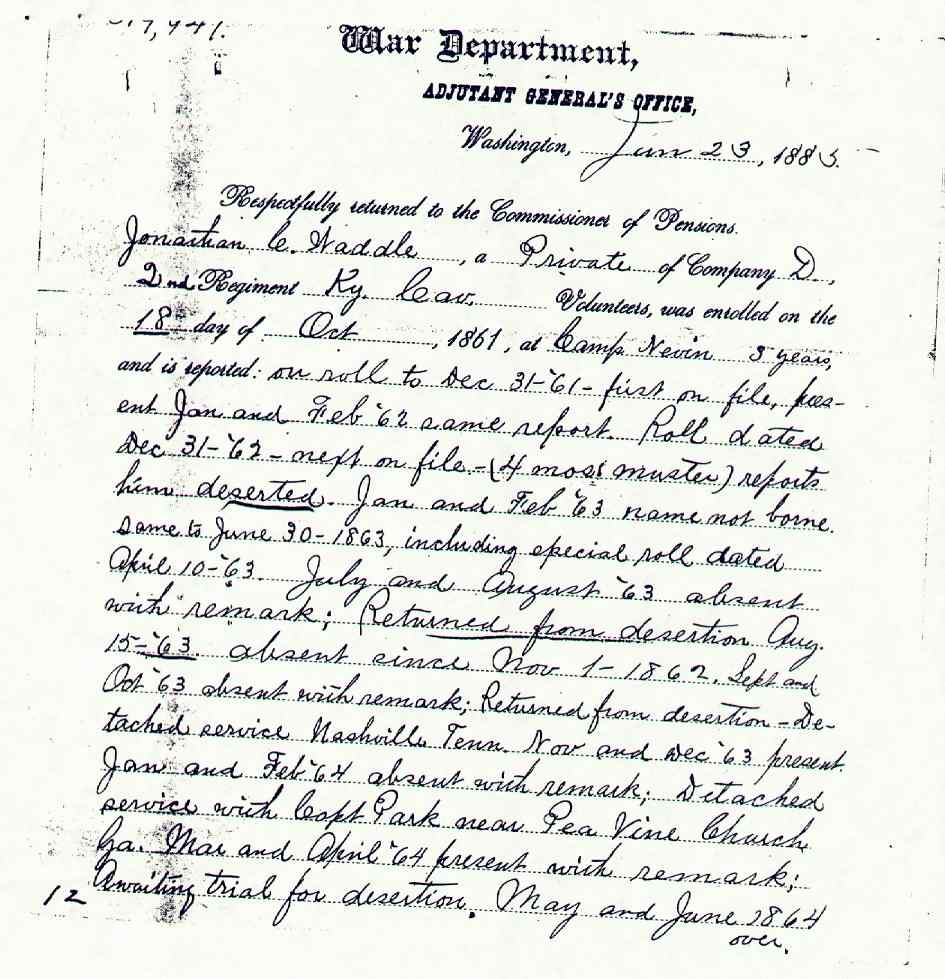 17,441.
War Department,
ADJUTANT GENERAL'S OFFICE,
Washington, Jun 23, 1883.
Respectfully returned to the Commissioner of Pensions.
Jonathan C. Waddle, a Private of Company D,
2nd Regiment Ky. Cav. Volunteers, was enrolled on the
18 day of Oct, 1861, at Camp Nevin 3 years,
and is reported: on roll to Dec 31-'61- first on file, pres-
ent Jan and Feb '62 same report. Roll dated
Dec 31-'62- next on file-(4 mos muster) reports
him deserted. Jan and Feb '63 name not borne.
same to June 30-1863, including special roll dated
April 10-'63. July and August '63 absent
with remark; Returned from desertion Aug.
15-'63. absent since Nov 1-1862. Sept and
Oct '63 absent with remark; Returned from desertion - De-
tached service Nashville Tenn. Nov and Dec '63 present.
Jan and Feb '64 absent with remark; Detached
service with Capt Park near Pea Vine Church
Ga. Mar and April '64 present with remark;
Awaiting trial for desertion. May and June 1864
12
over.